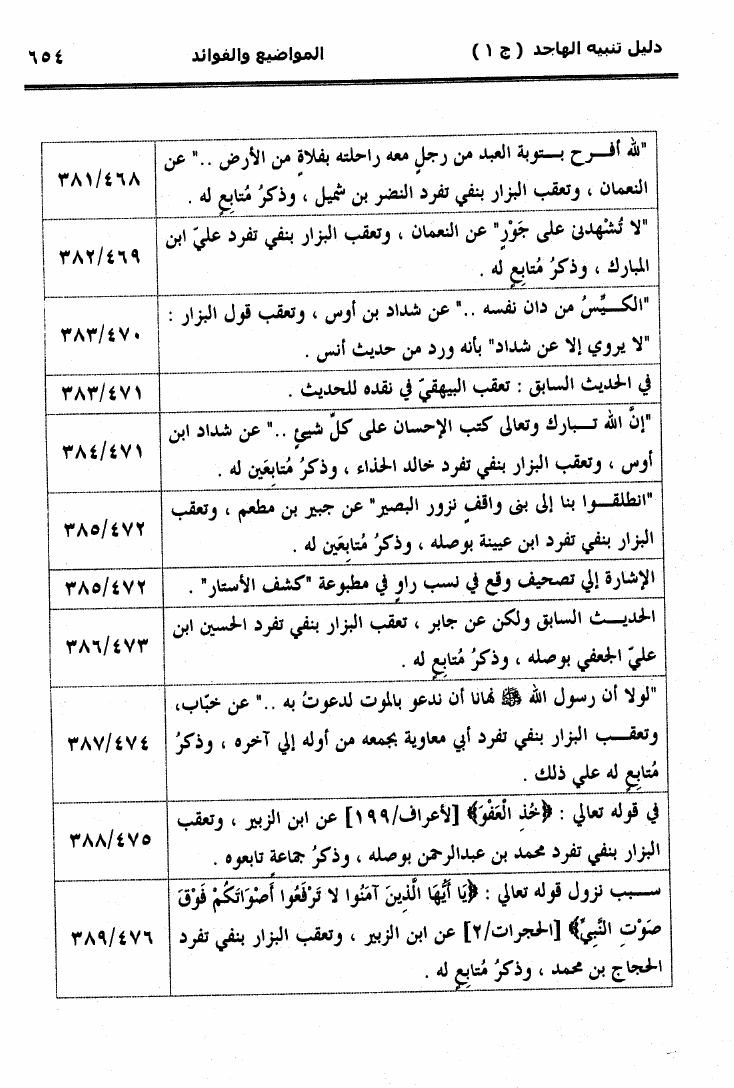 دليل تنبيه الهاجد ( ج ١ ) المواضيع والفوائد ٦٥٤
"لله أفـــرح بـــتوبة العبد من رجلٍ معه راحلته بفلاةٍ من الأرض .." عن
النعمان ، وتعقب البزار بنفي تفرد النضر بن شميل ، وذكرُ مُتابِعٍ له . ٣٨١/٤٦٨
"لا تُشْهدني على جَوْرٍ" عن النعمان ، وتعقب البزار بنفي تفرد عليّ ابن
المبارك ، وذكرُ مُتابِعٍ له . ٣٨٢/٤٦٩
"الكـــيِّسُ من دان نفسه .." عن شداد بن أوس ، وتعقب قول البزار :
"لا يروي إلا عن شداد" بأنه ورد من حديث أنس . ٣٨٣/٤٧٠
في الحديث السابق : تعقب البيهقيّ في نقده للحديث . ٣٨٣/٤٧١
"إنَّ الله تـــبارك وتعالى كتب الإحسان على كلِّ شيئٍ .." عن شداد ابن
أوس ، وتعقب البزار بنفي تفرد خالد الحذاء ، وذكرُ مُتابِعَين له . ٣٨٤/٤٧١
"انطلقـــوا بنا إلى بنى واقفٍ نزور البصير" عن جبير بن مطعم ، وتعقب
البزار بنفي تفرد ابن عيينة بوصله ، وذكرُ مُتابِعَين له . ٣٨٥/٤٧٢
الإشارة إلي تصحيف وقع في نسب راوٍ في مطبوعة "كشف الأستار" . ٣٨٥/٤٧٢
الحديـــث السابق ولكن عن جابر ، تعقب البزار بنفي تفرد الحسين ابن
عليّ الجعفي بوصله ، وذكرُ مُتابِعٍ له . ٣٨٦/٤٧٣
"لولا أن رسول الله ﷺ نهانا أن ندعو بالموت لدعوتُ به .." عن خبّاب،
وتعقـــب البزار بنفي تفرد أبي معاوية بجمعه من أوله إلي آخره ، وذكرُ
مُتابِعٍ له علي ذلك . ٣٨٧/٤٧٤
في قوله تعالي : ﴿خُذِ الْعَفْوَ﴾ [لأعراف/١٩٩] عن ابن الزبير ، وتعقب
البزار بنفي تفرد محمد بن عبدالرحمن بوصله ، وذكرُ جماعةٍ تابعوه . ٣٨٨/٤٧٥
ســـبب نزول قوله تعالي : ﴿يَا أَيُّهَا الَّذِينَ آمَنُوا لا تَرْفَعُوا أَصْوَاتَكُمْ فَوْقَ
صَوْتِ النَّبِيِّ﴾ [الحجرات/٢] عن ابن الزبير ، وتعقب البزار بنفي تفرد
الحجاج بن محمد ، وذكرُ مُتابِعٍ له . ٣٨٩/٤٧٦